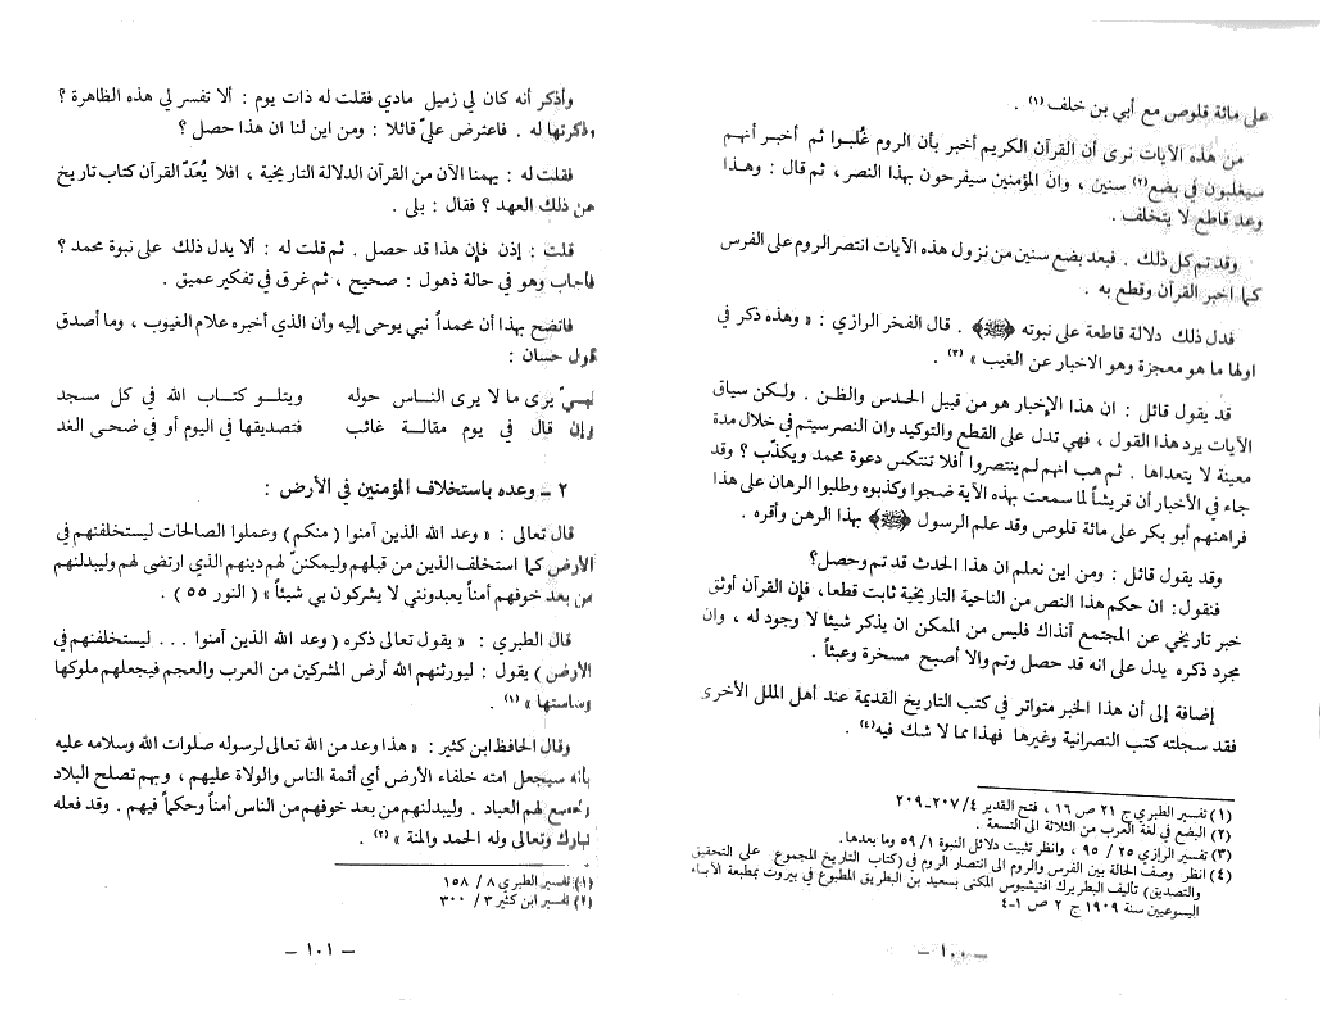 على مائة قلوص مع أبي بن خلف (١) .
من هذه الآيات نرى أن القرآن الكريم أخبر بأن الروم غُلبوا ثم أخبر أنهم
سيغلبون في بضع (٢) سنين ، وان المؤمنين سيفرحون بهذا النصر ، ثم قال : وهذا
وعد قاطع لا يتخلف .
وقد تم كل ذلك . فبعد بضع سنين من نزول هذه الآيات انتصر الروم على الفرس
كما اخبر القرآن وقطع به .
فدل ذلك دلالة قاطعة على نبوته ﴿ﷺ﴾ . قال الفخر الرازي : « وهذه ذكر في
اولها ما هو معجزة وهو الاخبار عن الغيب » (٣) .
قد يقول قائل : ان هذا الإخبار هو من قبيل الحدس والظن . ولكن سياق
الآيات يرد هذا القول ، فهي تدل على القطع والتوكيد وان النصر سيتم في خلال مدة
معينة لا يتعداها . ثم هب انهم لم ينتصروا أفلا تنتكس دعوة محمد ويكذّب ؟ وقد
جاء في الأخبار أن قريشاً لما سمعت بهذه الآية ضجوا وكذبوه وطلبوا الرهان على هذا
فراهنهم أبو بكر على مائة قلوص وقد علم الرسول ﴿ﷺ﴾ بهذا الرهن وأقره .
وقد يقول قائل : ومن اين نعلم ان هذا الحدث قد تم وحصل؟
فنقول: ان حكم هذا النص من الناحية التاريخية ثابت قطعا، فإن القرآن أوثق
خبر تاريخي عن المجتمع آنذاك فليس من الممكن ان يذكر شيئا لا وجود له ، وان
مجرد ذكره يدل على انه قد حصل وتم والا أصبح مسخرة وعبثاً .
إضافة إلى أن هذا الخبر متواتر في كتب التاريخ القديمة عند أهل الملل الأخرى
فقد سجلته كتب النصرانية وغيرها فهذا مما لا شك فيه (٤) .
(١) تفسير الطبري ج ٢١ ص ١٦ ، فتح القدير ٤/ ٢٠٧ـ٢٠٩
(٢) البضع في لغة العرب من الثلاثة الى التسعة .
(٣) تفسير الرازي ٢٥ / ٩٥ ، وانظر تثبيت دلائل النبوة ١/ ٥٩ وما بعدها.
(٤) انظر وصف الحالة بين الفرس والروم الى انتصار الروم في (كتاب التاريخ المجموع على التحقيق
والتصديق) تأليف البطريرك افتيشيوس المكنى بسعيد بن البطريق المطبوع في بيروت بمطبعة الآباء
اليسوعيين سنة ١٩٠٩ ج ٢ ص ١-٤
– ١٠٠ –
وأذكر أنه كان لي زميل مادي فقلت له ذات يوم : ألا تفسر لي هذه الظاهرة ؟
وذكرتها له . فاعترض عليّ قائلا : ومن اين لنا ان هذا حصل ؟
فقلت له : يهمنا الآن من القرآن الدلالة التاريخية ، افلا يُعدّ القرآن كتاب تاريخ
عن ذلك العهد ؟ فقال : بلى .
قلت : إذن فإن هذا قد حصل . ثم قلت له : ألا يدل ذلك على نبوة محمد ؟
فأجاب وهو في حالة ذهول : صحيح ، ثم غرق في تفكير عميق .
فاتضح بهذا أن محمداً نبي يوحى إليه وأن الذي أخبره علام الغيوب ، وما أصدق
قول حسان :
نبيّ يرى ما لا يرى الناس حوله ويتلو كتاب الله في كل مسجد
وإن قال في يوم مقالة غائب فتصديقها في اليوم أو في ضحى الغد
٢ ـ وعده باستخلاف المؤمنين في الأرض :
قال تعالى : « وعد الله الذين آمنوا (منكم) وعملوا الصالحات ليستخلفنهم في
الأرض كما استخلف الذين من قبلهم وليمكننّ لهم دينهم الذي ارتضى لهم وليبدلنهم
من بعد خوفهم أمناً يعبدونني لا يشركون بي شيئاً » ( النور ٥٥ ) .
قال الطبري : « يقول تعالى ذكره (وعد الله الذين آمنوا ... ليستخلفنهم في
الأرض) يقول : ليورثنهم الله أرض المشركين من العرب والعجم فيجعلهم ملوكها
وساستها » (١) .
وقال الحافظ ابن كثير : « هذا وعد من الله تعالى لرسوله صلوات الله وسلامه عليه
بأنه سيجعل امته خلفاء الأرض أي أئمة الناس والولاة عليهم ، وبهم تصلح البلاد
وتخضع لهم العباد . وليبدلنهم من بعد خوفهم من الناس أمناً وحكماً فيهم . وقد فعله
تبارك وتعالى وله الحمد والمنة » (٢) .
(١) تفسير الطبري ٨ / ١٥٨
(٢) تفسير ابن كثير ٣ / ٣٠٠
– ١٠١ –